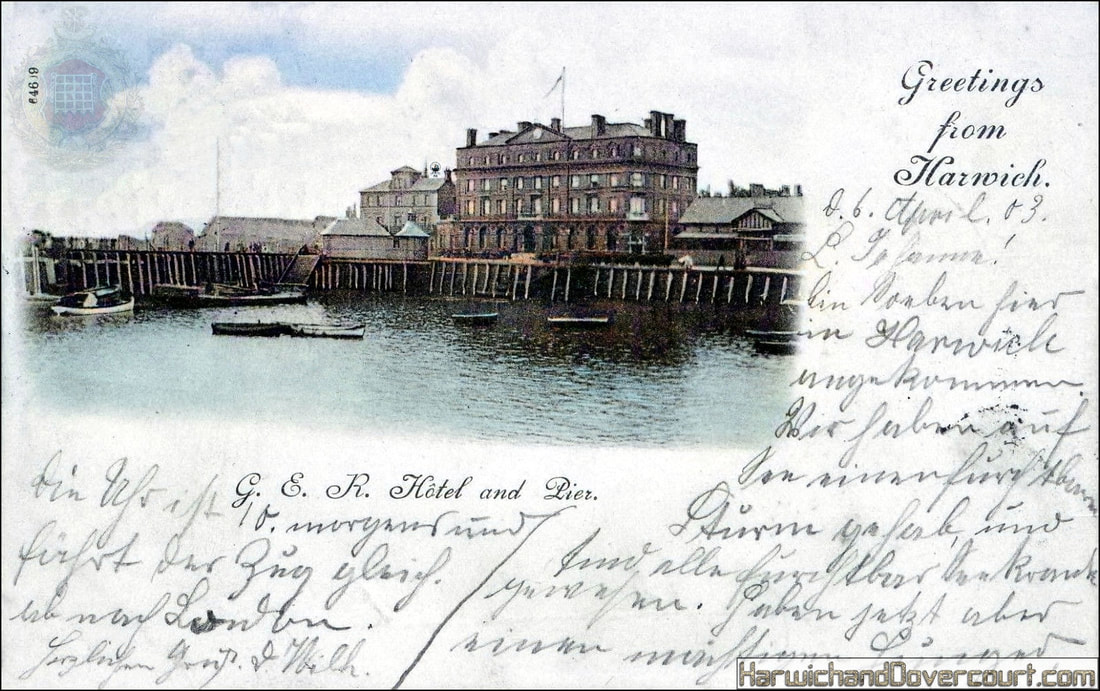 64619
Greetings
from
Harwich.
d. 6. April. 03.
L. Johanne!
bin Soeben hier
in Harwich
angekommen.
Wir haben auf
See einen furchtbaren
Sturm gehab, und
sind alle furchtbar Seekrank
gewesen. Haben jetzt aber
einen mächtigen Hunger.
G. E. R. Hôtel and Pier.
die Uhr ist
10. morgens und
fährt der Zug gleich.
ab nach London.
Herzlichen Gruß. d. Wilh.
HarwichandDovercourt.com